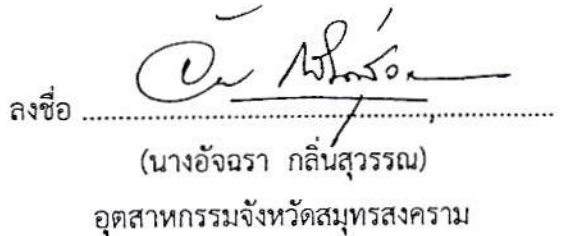 ลงชื่อ ....................................................................
(นางอัจฉรา กลิ่นสุวรรณ)
อุตสาหกรรมจังหวัดสมุทรสงคราม